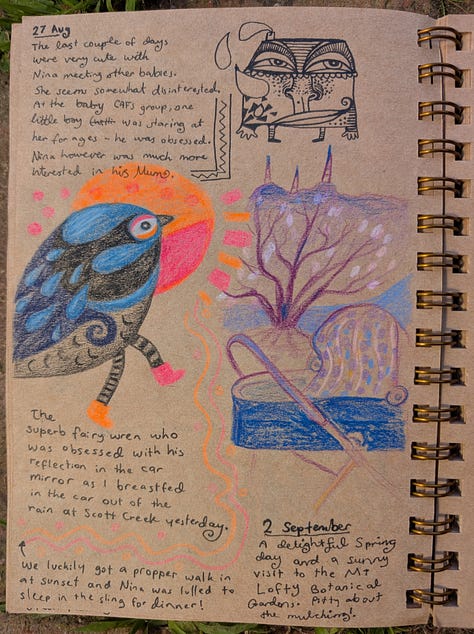 27 Aug
The last couple of days
were very cute with
Nina meeting other babies.
She seems somewhat disinterested.
At the baby CAFS group, one
little boy was staring at
her for ages - he was obsessed.
Nina however was much more
interested in his Mum.
The
superb fairy wren who
was obsessed with his
reflection in the car
mirror as I breastfed
in the car out of the
rain at Scott Creek yesterday.
we luckily got a propper walk in
at sunset and Nina was lulled to
sleep in the sling for dinner!
2 September
A delightful Spring
day and a sunny
visit to the Mt
Lofty Botanical
Gardens. Pitty about
the mulching!